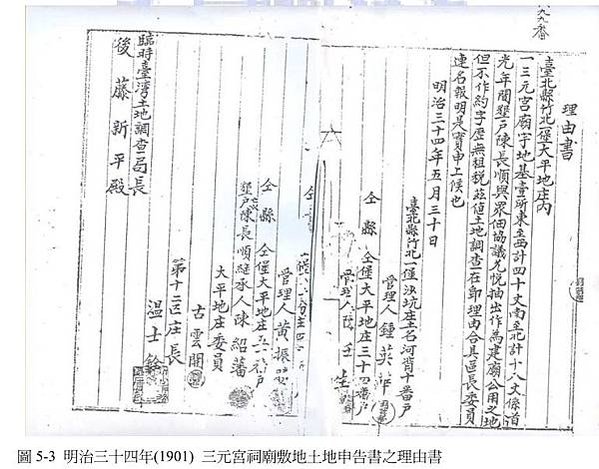 理由書
臺北縣竹北一堡大平地庄內
一三元宮廟宇地基壹所東至西計四十丈南至北計十八丈係道
光年間墾戶陳長順與眾佃協議允悅抽出作為建廟公用之地
但不作約字歷無租稅茲值土地調查一石卽理由合具區長委員
連名報明是實申上候也
明治三十四年五月三十日
臺北縣竹北一堡沙坑庄土名河背十番戶
管理人
仝縣 仝堡大平地庄三十四番戶
管理人
管理人 黃振
仝縣 仝堡大平地庄五十六番戶
墾戶陳長順繼承人陳紹藩
大平地庄委員
古雲開
第十二區庄長
溫士
臨時臺灣土地調查局長
後藤新平殿
圖 5-3 明治三十四年(1901) 三元宮祠廟敷地土地申告書之理由書